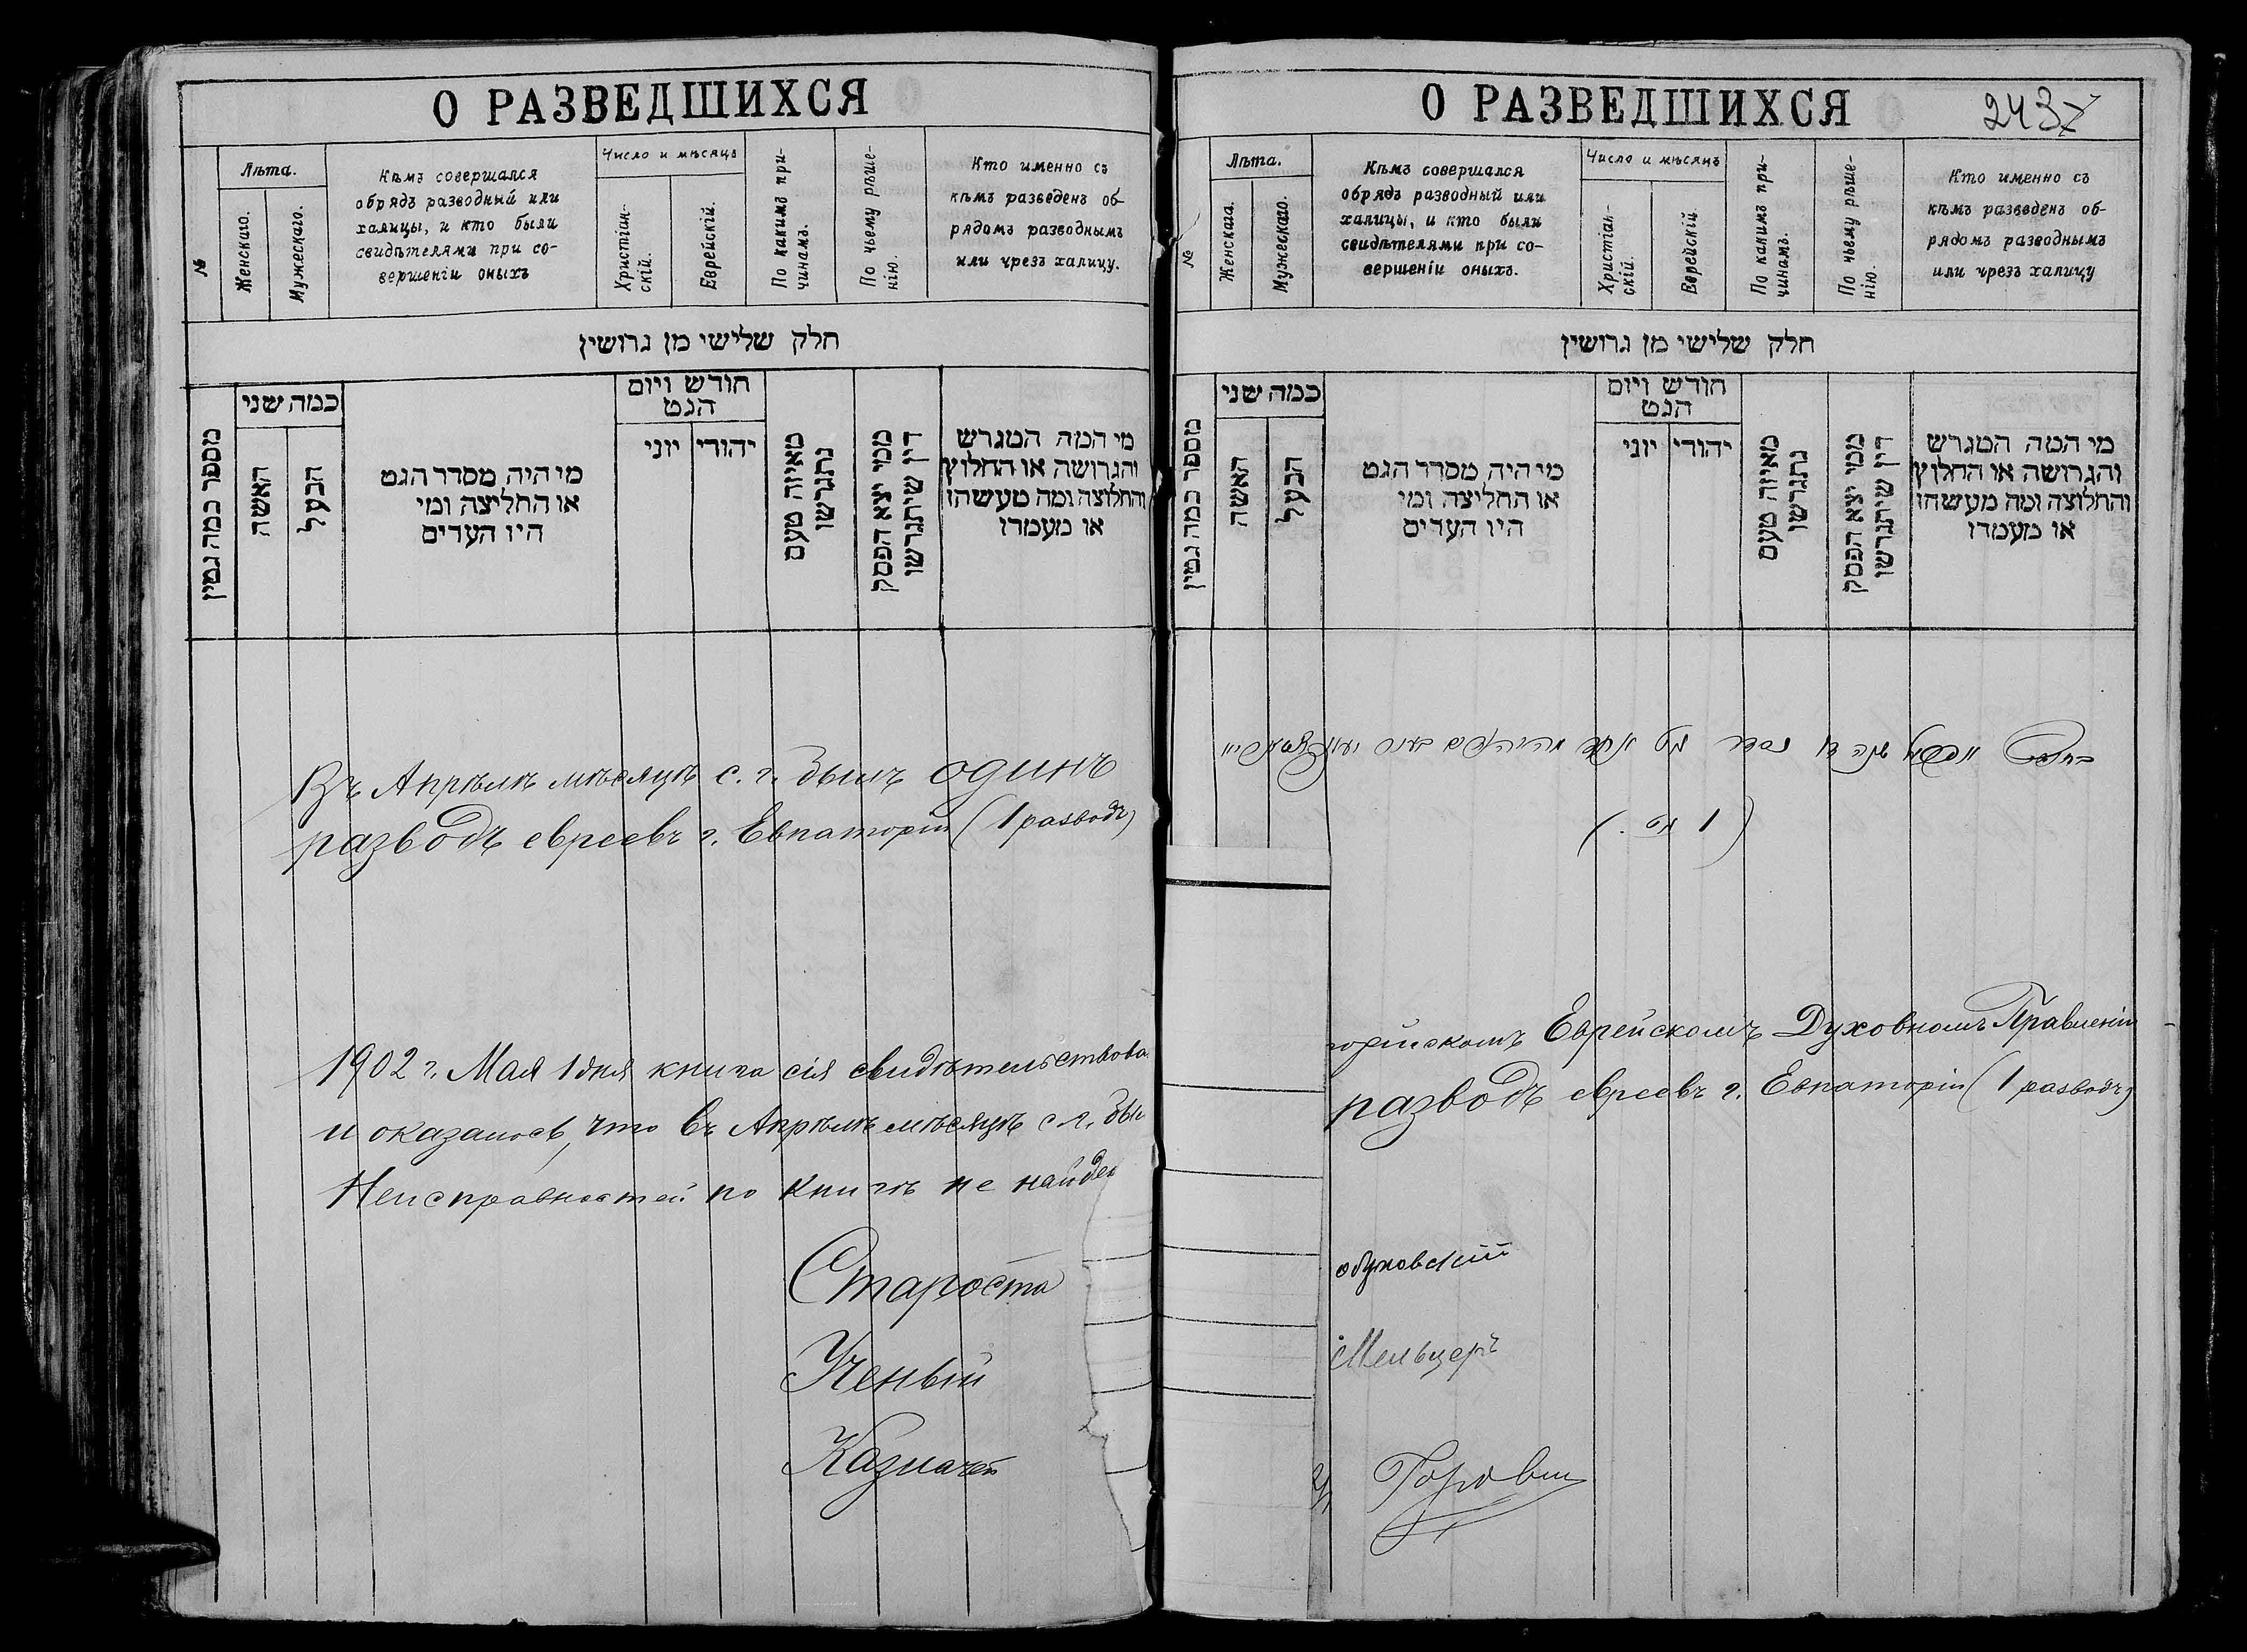 О РАЗВЕДШИХСЯ
№
Лѣта.
Женскаго.
Мужескаго.
Кѣмъ совершался
обрядъ разводный или
халицы, и кто были
свидѣтелями при со-
вершеніи оныхъ
Число и мѣсяцъ
Христіан-
скій.
Еврейскій.
По какимъ при-
чинамъ.
По чьему рѣше-
нію.
Кто именно съ
кѣмъ разведенъ об-
рядомъ разводнымъ
или чрезъ халицу.
חלק שלישי מן גרושין
מספר כמה גטין
כמה שני
האשה
הבעל
מי היה מסדר הגט
או החליצה ומי
היו העדים
חודש ויום
הגט
יהודי
יוני
מאיזה טעם
נתגרשו
ממי יצא הפסק
דין שיתגרשו
מי המה המגרש
והגרושה או החלוץ
והחלוצה ומה מעשהו
או מעמדו
Въ Апрѣлѣ мѣсяцѣ с. г. былъ одинъ
разводъ евреевъ г. Евпаторіи (1 разводъ)
1902 г. Мая 1 дня книга сія свидѣтельствова
и оказалось, что въ Апрѣлѣ мѣсяцѣ с. г. бы
Неисправностей по книгѣ не найде
Староста
Ученый
Казначей
О РАЗВЕДШИХСЯ
2437
№
Лѣта.
Женскаго.
Мужескаго.
Кѣмъ совершался
обрядъ разводный или
халицы, и кто были
свидѣтелями при со-
вершеніи оныхъ.
Число и мѣсяцъ
Христіан-
скій.
Еврейскій.
По какимъ при-
чинамъ.
По чьему рѣше-
нію.
Кто именно съ
кѣмъ разведенъ об-
рядомъ разводнымъ
или чрезъ халицу
חלק שלישי מן גרושין
מספר כמה גטין
כמה שני
האשה
הבעל
מי היה מסדר הגט
או החליצה ומי
היו העדים
חודש ויום
הגט
יהודי
יוני
מאיזה טעם
נתגרשו
ממי יצא הפסק
דין שיתגרשו
מי המה המגרש
והגרושה או החלוץ
והחלוצה ומה מעשהו
או מעמדו
(1 גט.)
торійскомъ Еврейскомъ Духовномъ Правленіи
разводъ евреевъ г. Евпаторіи (1 разводъ)
Мельцеръ